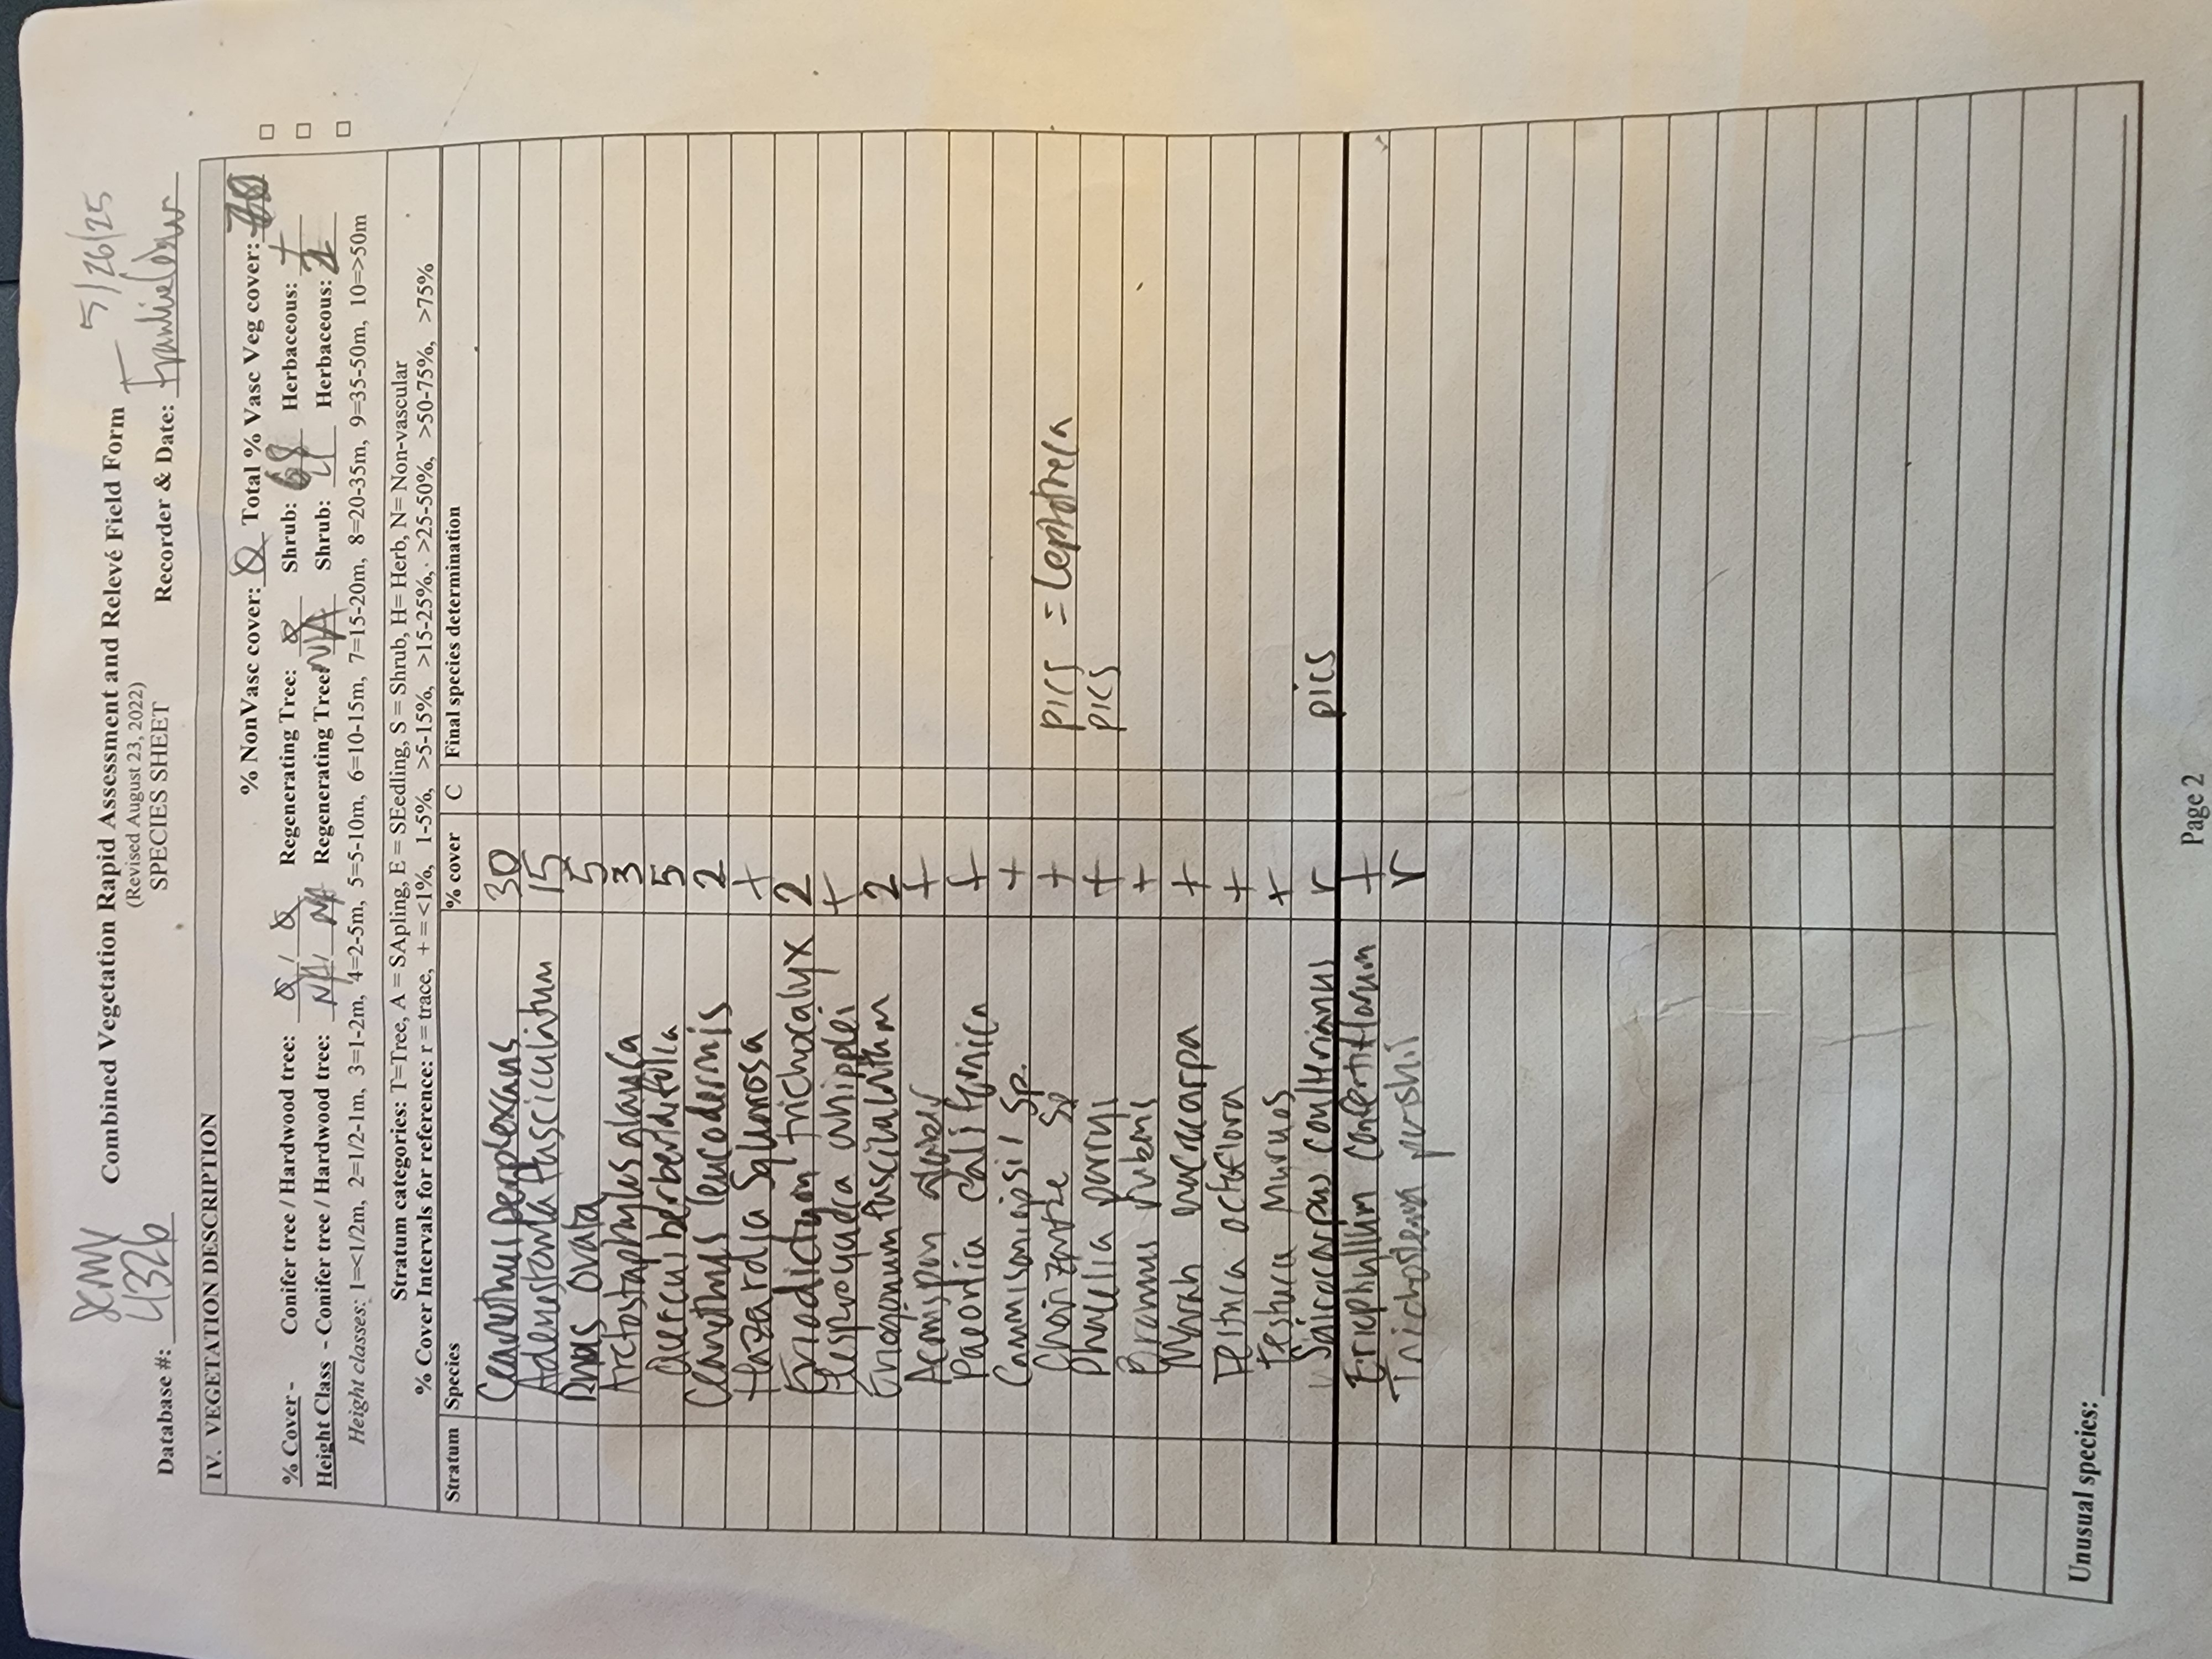 Combined Vegetation Rapid Assessment and Relevé Field Form
(Revised August 23, 2022)
SPECIES SHEET
5/26/25
Database #: 4326
Recorder & Date:
IV. VEGETATION DESCRIPTION
% NonVasc cover: 0 Total % Vasc Veg cover:
% Cover - Conifer tree / Hardwood tree: 0 / 0 Regenerating Tree: 0 Shrub: 68 Herbaceous: +
Height Class - Conifer tree / Hardwood tree: NA / NA Regenerating Tree: N/A Shrub: 4 Herbaceous: 2
Height classes: 1=<1/2m, 2=1/2-1m, 3=1-2m, 4=2-5m, 5=5-10m, 6=10-15m, 7=15-20m, 8=20-35m, 9=35-50m, 10=>50m
Stratum categories: T=Tree, A = SApling, E = SEedling, S = Shrub, H= Herb, N= Non-vascular
% Cover Intervals for reference: r = trace, + = <1%, 1-5%, >5-15%, >15-25%, >25-50%, >50-75%, >75%
Stratum Species % cover C Final species determination
Ceanothus perplexans 30
Adenostoma fasciculatum 15
Rhus ovata 5
Arctostaphylos glauca 3
Quercus berberidifolia 5
Ceanothus leucodermis 2
Hazardia Squarrosa +
Eriodictyon trichocalyx 2
Hesproyucca whipplei +
Eriogonum fasciculatum 2
Acmispon glaber +
Paeonia californica +
Cammisoniopsis sp. +
Chorizanthe sp + pics = Leptotheca
Phacelia parryi + pics
Bromus rubens +
Marah macrocarpa +
Festuca octoflora +
Festuca myuros +
coulterianus r pics
Eriophyllum confertiflorum +
Trichostema parishii r
Unusual species:
Page 2